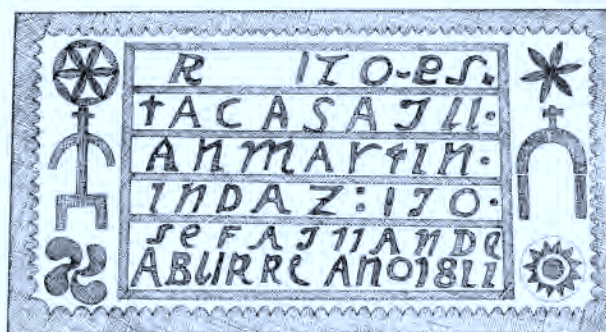 R ITO-eS.
tACASAJll·
ANMARtIN·
INDAZ:IJO·
SeFAJNANDe
ABURRe ANO1811